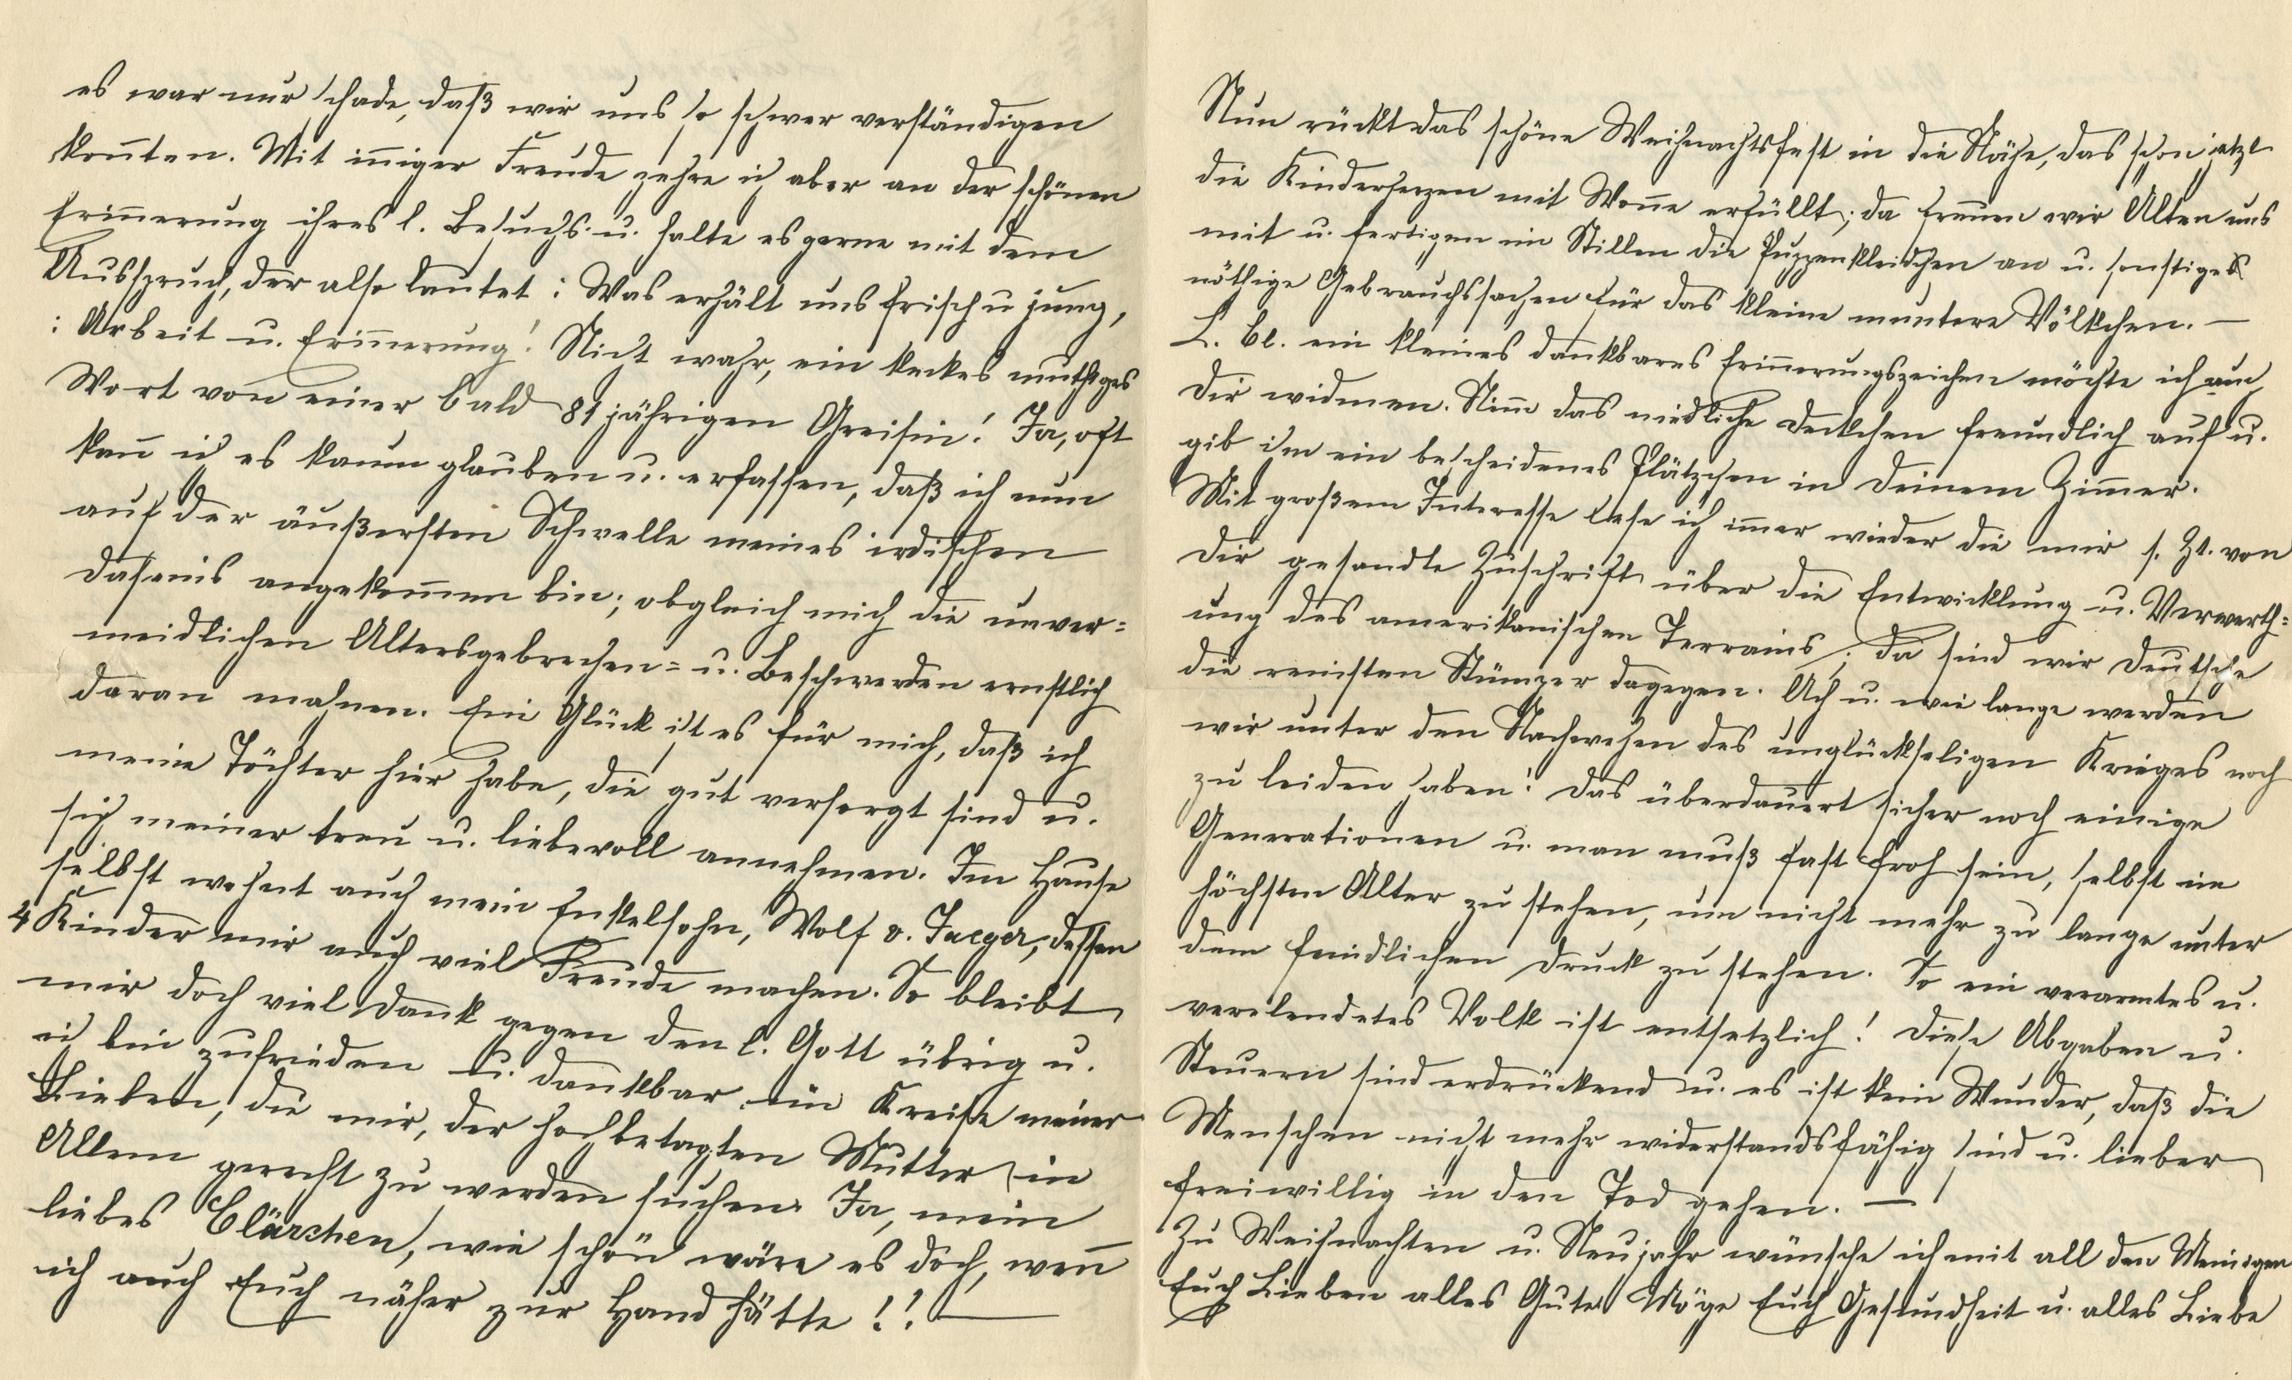 es war nur schade, daß wir uns so schwer verständigen
konnten. Mit inniger Freude zehre ich aber an der schönen
Erinnerung ihres l. Besuchs u. halte es gerne mit dem
Ausspruch, der also lautet: Was erhält uns frisch u jung,
: Arbeit u. Erinnerung! Nicht wahr, ein keckes muthiges
Wort von einer bald 81 jährigen Greisin! Ja, oft
kann ich es kaum glauben u. erfassen, daß ich nun
auf der äußersten Schwelle meines irdischen
Daseins angekommen bin; obgleich mich die unver=
meidlichen Altersgebrechen= u. Beschwerden ernstlich
daran mahnen. Ein Glück ist es für mich, daß ich
meine Töchter hier habe, die gut versorgt sind u.
sich meiner treu u. liebevoll annehmen. Im Hause
selbst wohnt auch mein Enkelsohn, Wolf v. Jaeger, dessen
4 Kinder mir auch viel Freude machen. So bleibt
mir doch viel Dank gegen den l. Gott übrig u.
ich bin zufrieden u. dankbar im Kreise meiner
Lieben, die mir, der hochbetagten Mutter in
Allem gerecht zu werden suchen. Ja, mein
liebes Clärchen, wie schön wäre es doch, wenn
ich auch Euch näher zur Hand hätte!! —
Nun rückt das schöne Weihnachtsfest in die Nähe, das schon jetzt
die Kinderherzen mit Wonne erfüllt; da freuen wir Alten uns
mit u. fertigen im Stillen die Puppenkleidchen an u. sonstiges
nöthige Gebrauchssachen für das kleine muntere Völkchen. —
L. Cl. ein kleines dankbares Erinnerungszeichen möchte ich nun
Dir widmen. Nimm das niedliche Deckchen freundlich auf u.
gib ihm ein bescheidenes Plätzchen in Deinem Zimmer.
Mit großem Interesse lese ich immer wieder die mir s. Zt. von
Dir gesandte Zuschrift über die Entwicklung u. Verwerth=
ung des amerikanischen Terrains; da sind wir Deutsche
die reinsten Stümper dagegen. Ach u. wie lange werden
wir unter den Nachwehen des unglückseligen Krieges noch
zu leiden haben! Das überdauert sicher noch einige
Generationen u. man muß fast froh sein, selbst im
höchsten Alter zu stehen, um nicht mehr zu lange unter
dem feindlichen Druck zu stehen. So ein verarmtes u.
verelendetes Volk ist entsetzlich! Diese Abgaben u.
Steuern sind erdrückend u. es ist kein Wunder, daß die
Menschen nicht mehr widerstandsfähig sind u. lieber
freiwillig in den Tod gehen. —
Zu Weihnachten u. Neujahr wünsche ich mit all den Meinigen
Euch Lieben alles Gute! Möge Euch Gesundheit u. alles Liebe